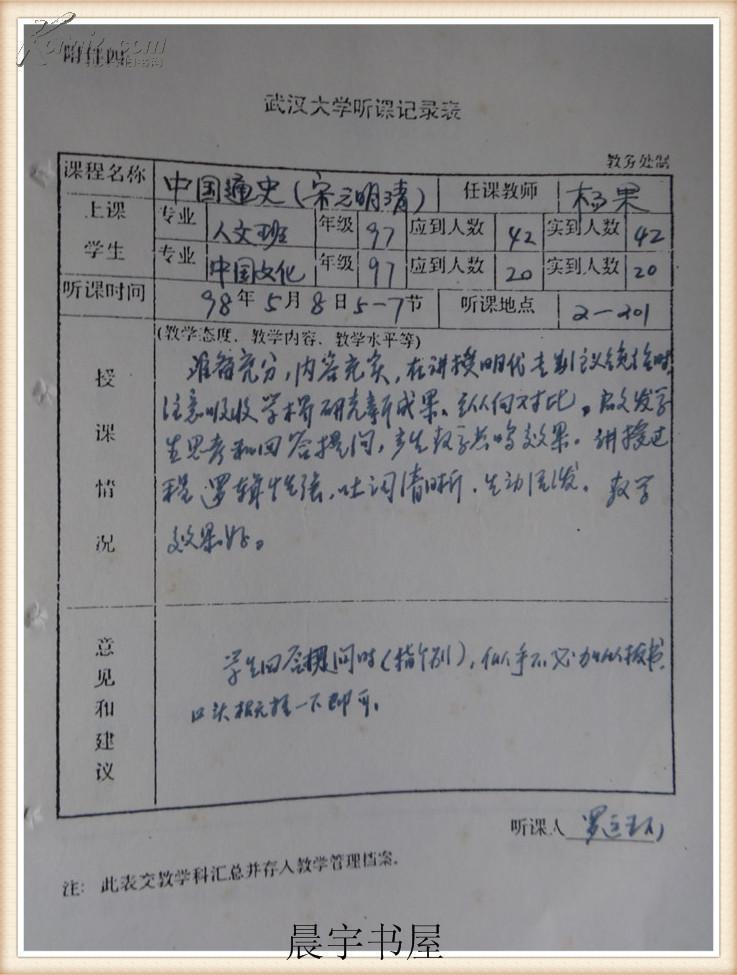 附件四
武汉大学听课记录表
教务处制
课程名称 中国通史(宋元明清) 任课教师 杨果
上课学生 专业 人文班 年级 97 应到人数 42 实到人数 42
专业 中国文化 年级 97 应到人数 20 实到人数 20
听课时间 98年5月8日5-7节 听课地点 2-201
授课情况
(教学态度、教学内容、教学水平等)
准备充分,内容充实,在讲授明代专制主义统治时
注意吸收学术界研究新成果、纵向对比。启发学
生思考和回答提问,产生教学共鸣效果。讲授过
程逻辑性强,吐词清晰、生动活泼。教学
效果好。
意见和建议
学生回答提问时(指个别),似乎不必加以板书,
口头概括一下即可。
听课人 罗
注:此表交教学科汇总并存入教学管理档案.
晨宇书屋